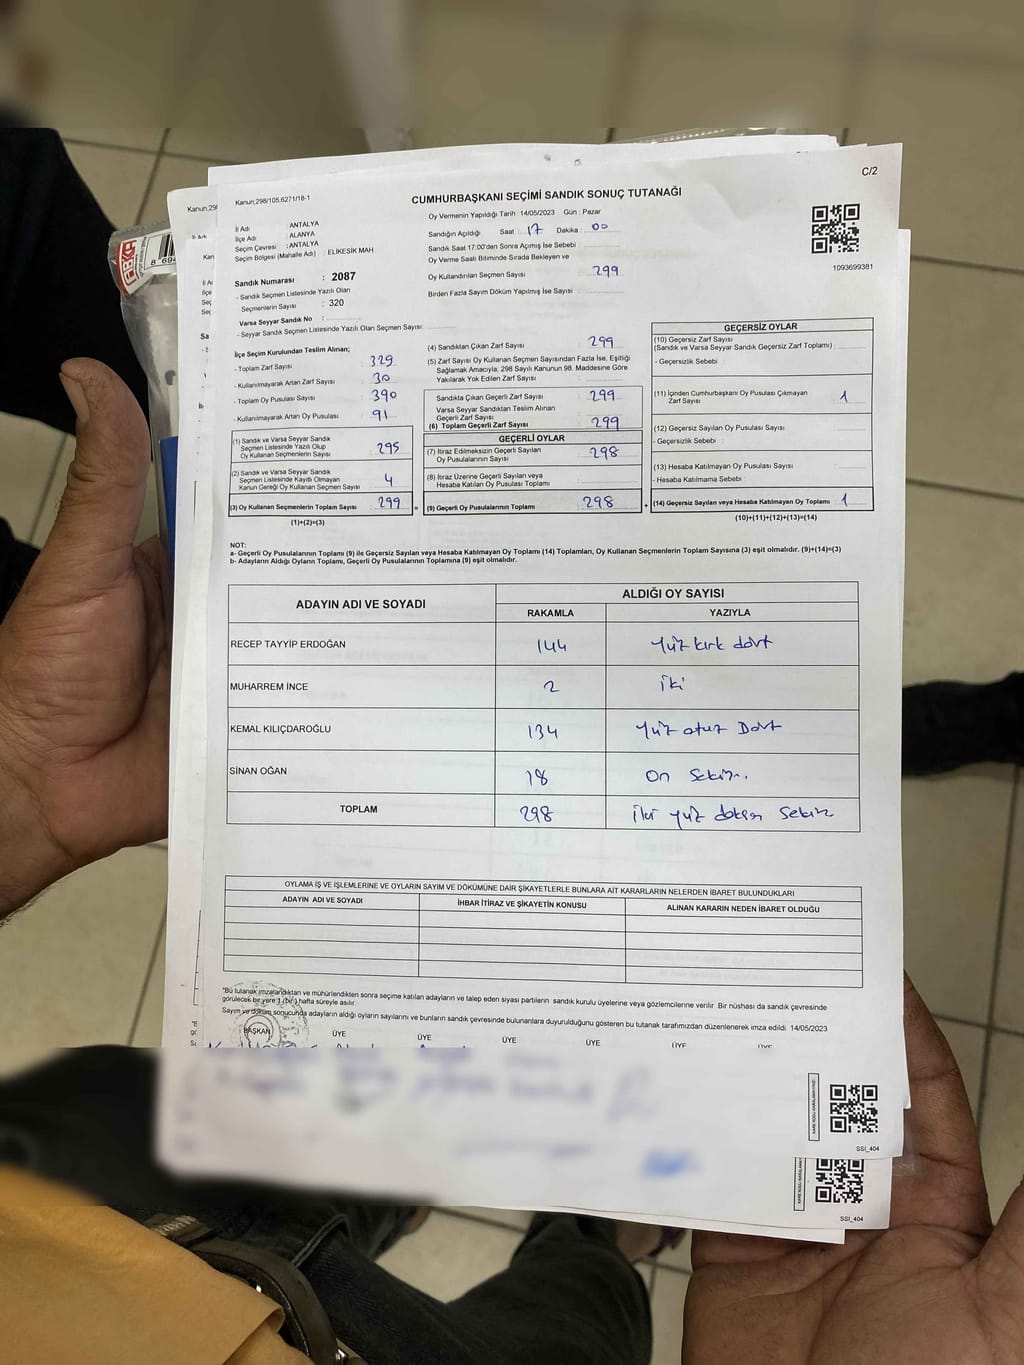 C/2
Kanun;298/105,6271/18-1
CUMHURBAŞKANI SEÇİMİ SANDIK SONUÇ TUTANAĞI
1093699381
İl Adı : ANTALYA
İlçe Adı : ALANYA
Seçim Çevresi : ANTALYA
Seçim Bölgesi (Mahalle Adı) : ELİKESİK MAH
Sandık Numarası : 2087
- Sandık Seçmen Listesinde Yazılı Olan
Seçmenlerin Sayısı : 320
Varsa Seyyar Sandık No :
- Seyyar Sandık Seçmen Listesinde Yazılı Olan Seçmen Sayısı:
Oy Vermenin Yapıldığı Tarih :14/05/2023 Gün : Pazar
Sandığın Açıldığı Saat : 17 Dakika : 00
Sandık Saat 17.00'den Sonra Açımış İse Sebebi
Oy Verme Saati Bitiminde Sırada Bekleyen ve
Oy Kullandırılan Seçmen Sayısı : 299
Birden Fazla Sayım Döküm Yapılmış İse Sayısı :
İlçe Seçim Kurulundan Teslim Alınan;
- Toplam Zarf Sayısı : 329
- Kullanılmayarak Artan Zarf Sayısı : 30
- Toplam Oy Pusulası Sayısı : 390
- Kullanılmayarak Artan Oy Pusulası : 91
(1) Sandık ve Varsa Seyyar Sandık
Seçmen Listesinde Yazılı Olup
Oy Kullanan Seçmenlerin Sayısı : 295
(2) Sandık ve Varsa Seyyar Sandık
Seçmen Listesinde Kayıtlı Olmayan
Kanun Gereği Oy Kullanan Seçmen Sayısı : 4
(3) Oy Kullanan Seçmenlerin Toplam Sayısı : 299
(1)+(2)=(3)
(4) Sandıktan Çıkan Zarf Sayısı : 299
(5) Zarf Sayısı Oy Kullanan Seçmen Sayısından Fazla İse, Eşitliği
Sağlamak Amacıyla, 298 Sayılı Kanunun 98. Maddesine Göre
Yakılarak Yok Edilen Zarf Sayısı :
Sandıkta Çıkan Geçerli Zarf Sayısı : 299
Varsa Seyyar Sandıktan Teslim Alınan
Geçerli Zarf Sayısı :
(6) Toplam Geçerli Zarf Sayısı : 299
GEÇERLİ OYLAR
(7) İtiraz Edilmeksizin Geçerli Sayılan
Oy Pusulalarının Sayısı : 298
(8) İtiraz Üzerine Geçerli Sayılan veya
Hesaba Katılan Oy Pusulası Toplamı :
(9) Geçerli Oy Pusulalarının Toplamı : 298
GEÇERSİZ OYLAR
(10) Geçersiz Zarf Sayısı
(Sandık ve Varsa Seyyar Sandık Geçersiz Zarf Toplamı) :
- Geçersizlik Sebebi :
(11) İçinden Cumhurbaşkanı Oy Pusulası Çıkmayan
Zarf Sayısı : 1
(12) Geçersiz Sayılan Oy Pusulası Sayısı :
- Geçersizlik Sebebi :
(13) Hesaba Katılmayan Oy Pusulası Sayısı :
- Hesaba Katılmama Sebebi :
(14) Geçersiz Sayılan veya Hesaba Katılmayan Oy Toplamı : 1
(10)+(11)+(12)+(13)=(14)
NOT:
a- Geçerli Oy Pusulalarının Toplamı (9) ile Geçersiz Sayılan veya Hesaba Katılmayan Oy Toplamı (14) Toplamları, Oy Kullanan Seçmenlerin Toplam Sayısına (3) eşit olmalıdır. (9)+(14)=(3)
b- Adayların Aldığı Oyların Toplamı, Geçerli Oy Pusulalarının Toplamına (9) eşit olmalıdır.
ADAYIN ADI VE SOYADI ALDIĞI OY SAYISI
RAKAMLA YAZIYLA
RECEP TAYYİP ERDOĞAN 144 Yüz kırk dört
MUHARREM İNCE 2 İki
KEMAL KILIÇDAROĞLU 134 Yüz otuz Dört
SİNAN OĞAN 18 On Sekiz.
TOPLAM 298 İki yüz doksan Sekiz
OYLAMA İŞ VE İŞLEMLERİNE VE OYLARIN SAYIM VE DÖKÜMÜNE DAİR ŞİKAYETLERLE BUNLARA AİT KARARLARIN NELERDEN İBARET BULUNDUKLARI
ADAYIN ADI VE SOYADI İHBAR İTİRAZ VE ŞİKAYETİN KONUSU ALINAN KARARIN NEDEN İBARET OLDUĞU
"Bu tutanak imzalandıktan ve mühürlendikten sonra seçime katılan adayların ve talep eden siyasi partilerin sandık kurulu üyelerine veya gözlemcilerine verilir. Bir nüshası da sandık çevresinde
görülecek bir yere 1 (bir) hafta süreyle asılır.
Sayım ve döküm sonucunda adayların aldığı oyların sayılarını ve bunların sandık çevresinde bulunanlara duyurulduğunu gösteren bu tutanak tarafımızdan düzenlenerek imza edildi. 14/05/2023
BAŞKAN ÜYE ÜYE ÜYE ÜYE ÜYE ÜYE
SSİ_404
SSİ_404